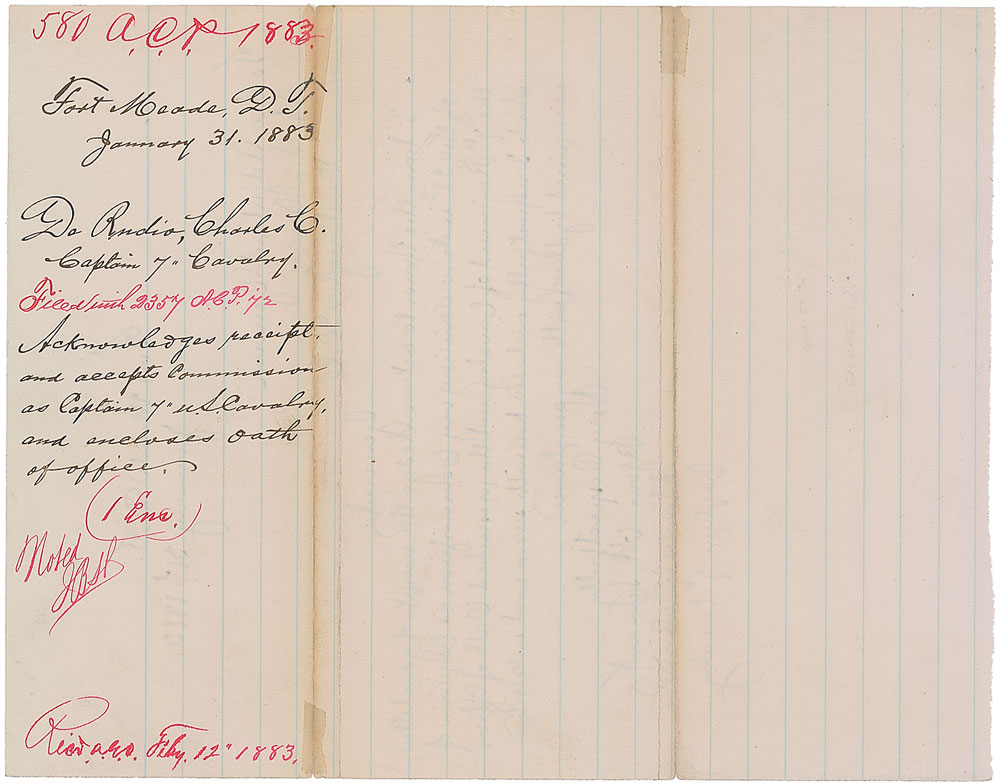 580 A.C.P. 1883.
Fort Meade, D. T.
January 31. 1883
De Rudio, Charles C.
Captain 7" Cavalry.
Filed with 2357 A.C.P. '72
Acknowledges receipt,
and accepts Commission
as Captain 7" U.S. Cavalry,
and encloses oath
of office.
(1 Enc.)
Noted
Recd. A.G.O. Feby. 12" 1883.